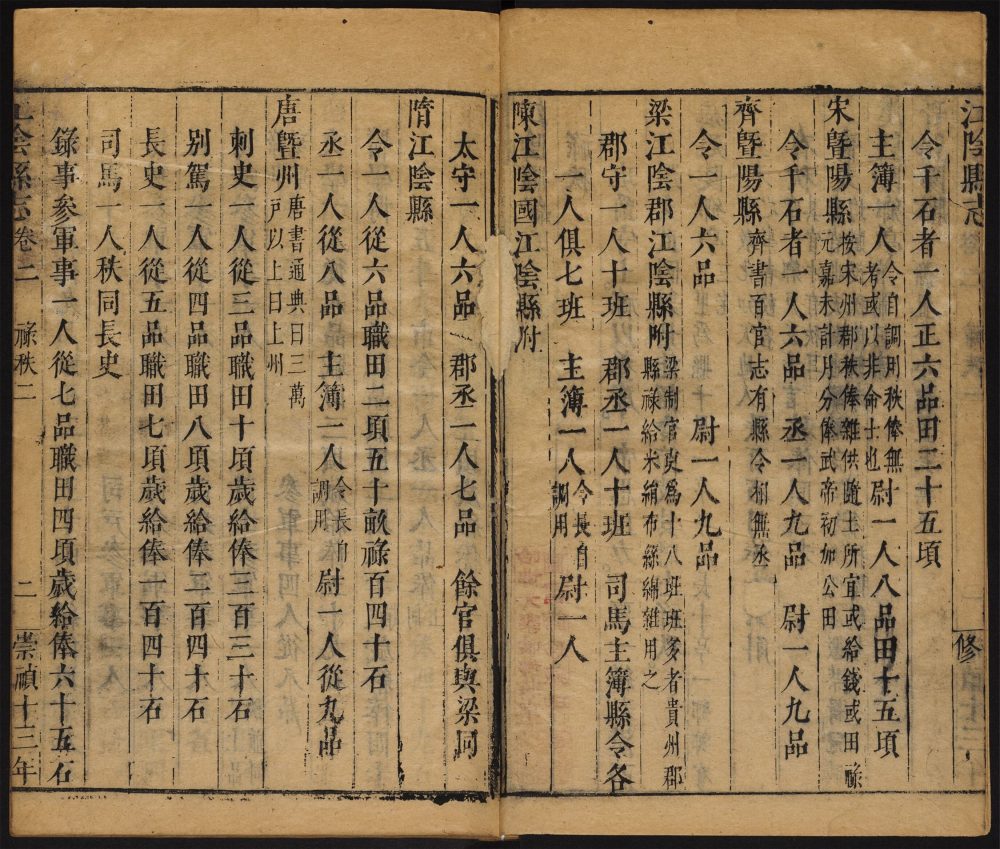 江陰縣志
修
令千石者一人正六品田二十五項
主簿一人令自調用秩俸無考或以非命士也尉一人八品田十五項
宋暨陽縣按宋州郡秩俸雜供隨土所宜或給錢或田祿元嘉末計月分俸武帝初加公田
令千石者一人六品 丞一人九品 尉一人九品
齊暨陽縣齊書百官志有縣令相無丞
令一人六品 尉一人九品
梁江陰郡江陰縣附梁制官吏為十八班班多者貴州郡縣祿給米絹布絲綿雜用之
郡守一人十班 郡丞一人十班 司馬主簿縣令各
一人俱七班 主簿一人令長自調用尉一人
陳江陰國江陰縣附
太守一人六品 郡丞一人七品 餘官俱與梁同
隋江陰縣
令一人從六品職田二項五十畝祿百四十石
丞一人從八品 主簿二人令長自調用 尉一人從九品
唐暨州唐書通典曰三萬戶以上曰上州
刺史一人從三品職田十項歲給俸三百三十石
別駕一人從四品職田八項歲給俸二百四十石
長史一人從五品職田七項歲給俸一百四十石
司馬一人秩同長史
錄事參軍事一人從七品職田四項歲給俸六十五石
江陰縣志 卷二 祿秩二 二 崇禎十三年